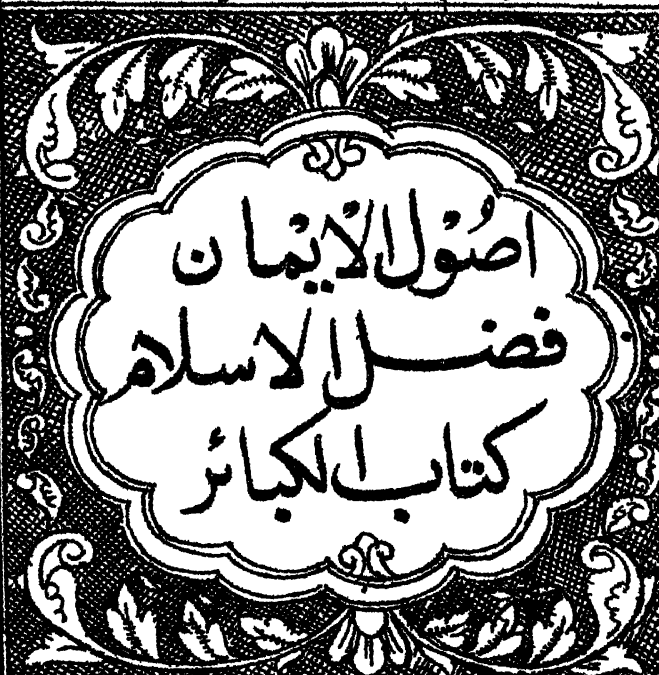 اصُوْل الْايْمان
فضل الاسلام
كتاب الكبائر